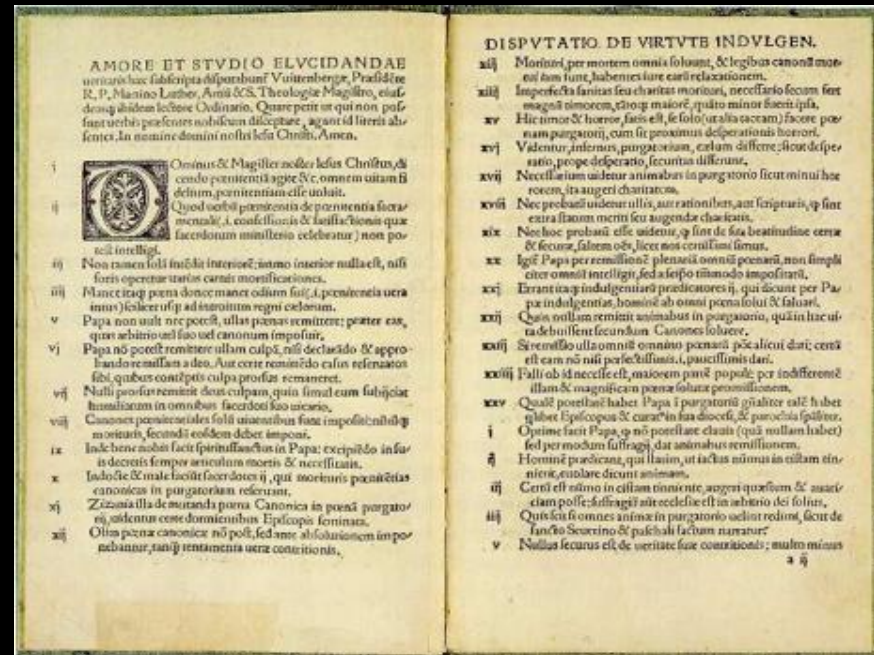 AMORE ET STVDIO ELVCIDANDAE
ueritatis hæc subscripta disputabunť Vuittenbergæ, Præsidēte
R. P. Martino Luther, Artiū & S. Theologiæ Magistro, eius-
demq; ibidem lectore Ordinario. Quare petit ut qui non pos-
sunt uerbis præsentes nobiscum disceptare, agant id literis ab-
sentes. In nomine domini nostri Iesu Christi. Amen.
i Dominus & Magister noster Iesus Christus, di
cendo pœnitentiā agite &c. omnem uitam fi
delium, pœnitentiam esse uoluit.
ij Quod uerbū pœnitentia de pœnitentia sacra-
mentali (.i. confessionis & satisfactionis quæ
sacerdotum ministerio celebratur) non po-
test intelligi.
iij Non tamen solā intēdit interiorē: immo interior nulla est, nisi
foris operetur uarias carnis mortificationes.
iiij Manet itaq; pœna donec manet odium sui (.i. pœnitentia uera
intus) scilicet usq; ad introitum regni cælorum.
v Papa non uult nec potest, ullas pœnas remittere: præter eas,
quas arbitrio uel suo uel canonum imposuit.
vj Papa nō potest remittere ullam culpā, nisi declarādo & appro-
bando remissam a deo. Aut certe remittēdo casus reseruatos
sibi, quibus contēptis culpa prorsus remaneret.
vij Nulli prorsus remittit deus culpam, quin simul eum subijciat
humiliatum in omnibus sacerdoti suo uicario.
viij Canones pœnitentiales solū uiuentibus sunt impositi: nihilq;
morituris, secundū eosdem debet imponi.
ix Inde bene nobis facit spiritussanctus in Papa: excipiēdo in su-
is decretis semper articulum mortis & necessitatis.
x Indocte & male faciūt sacerdotes ij, qui morituris pœnitētias
canonicas in purgatorium reseruant.
xj Zizania illa de mutanda pœna Canonica in pœnā purgato-
rij, uidentur certe dormientibus Episcopis seminata.
xij Olim pœnæ canonicæ nō post, sed ante absolutionem impo-
nebantur, tanq̄ tentamenta ueræ contritionis.
DISPVTATIO DE VIRTVTE INDVLGEN.
xiij Morituri, per mortem omnia soluunt, & legibus canonū mor-
tui iam sunt, habentes iure earū relaxationem.
xiiij Imperfecta sanitas seu charitas morituri, necessario secum fert
magnū timorem, tātoq; maiorē, quāto minor fuerit ipsa.
xv Hic timor & horror, satis est, se solo (ut alia taceam) facere pœ-
nam purgatorij, cum sit proximus desperationis horrori.
xvj Videntur, infernus, purgatorium, cælum differre: sicut despe-
ratio, prope desperatio, securitas differunt.
xvij Necessarium uidetur animabus in purgatorio sicut minui hor
rorem, ita augeri charitatem.
xviij Nec probatū uidetur ullis, aut rationibus, aut scripturis, q̄ sint
extra statum meriti seu augendæ charitatis.
xix Nec hoc probatū esse uidetur, q̄ sint de sua beatitudine certæ
& securæ, saltem oēs, licet nos certissimi simus.
xx Igiť Papa per remissionē plenariā omniū pœnarū, non simpli
citer omniū intelligit, sed a seipso tātūmodo impositarū.
xxj Errant itaq; indulgentiarū prædicatores ij, qui dicunt per Pa-
pæ indulgentias, hominē ab omni pœna solui & saluari.
xxij Quin nullam remittit animabus in purgatorio, quā in hac ui-
ta debuissent secundum Canones soluere.
xxiij Si remissio ulla omniū omnino pœnarū pōt alicui dari: certū
est eam nō nisi perfectissimis .i. paucissimis dari.
xxiiij Falli ob id necesse est, maiorem partē populi: per indifferentē
illam & magnificam pœnæ solutæ promissionem.
xxv Qualē potestatē habet Papa ī purgatoriū gňaliter talē habet
quilibet Episcopus & curatꝰ in sua diocesi, & parochia spāliter.
i Optime facit Papa, q̄ nō potestate clauis (quā nullam habet)
sed per modum suffragij, dat animabus remissionem.
ij Hominē prædicant, qui statim, ut iactus nūmus in cistam tin-
nierit, euolare dicunt animam.
iij Certū est nūmo in cistam tinniente, augeri quæstum & auari-
ciam posse: suffragiū aūt ecclesiæ est in arbitrio dei solius.
iiij Quis scit si omnes animæ in purgatorio uelint redimi, sicut de
sancto Seuerino & paschali factum narratur?
v Nullus securus est de ueritate suæ contritionis: multo minus
a ij